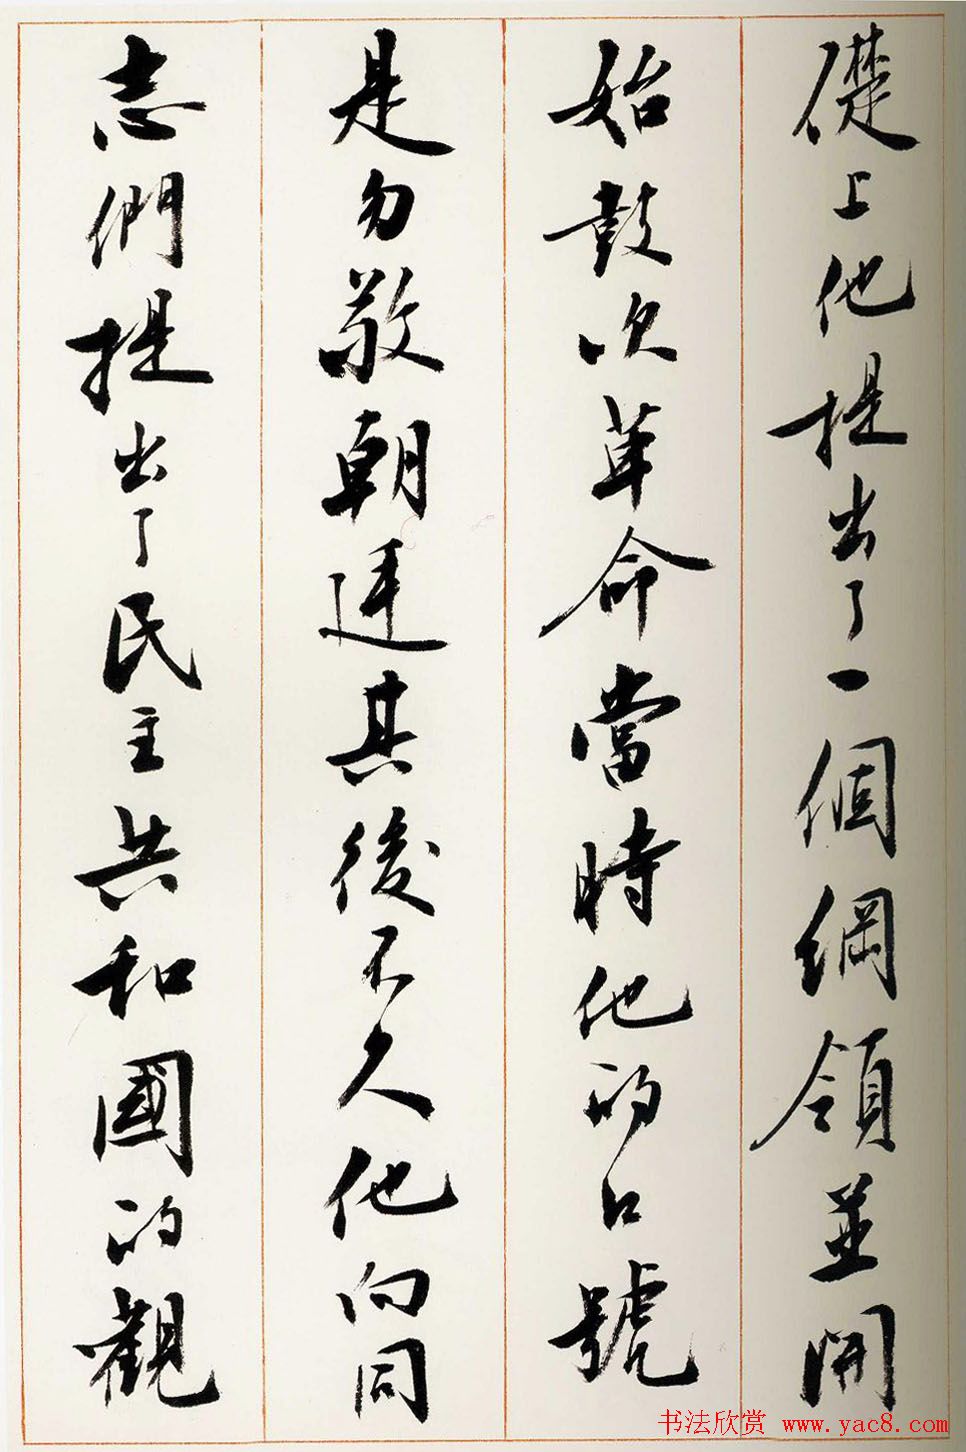 礎上他提出了一個綱領並開
始鼓吹革命當時他的口號
是勿敬朝廷其後不久他向同
志們提出了民主共和國的觀
书法欣赏 www.yac8.com